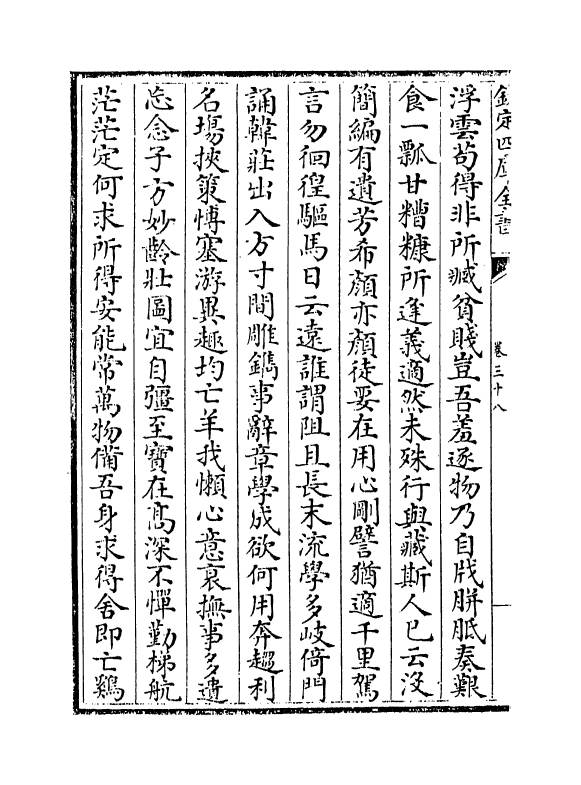 欽定四庫全書
卷三十八
浮雲苟得非所臧貧賤豈吾羞逐物乃自戕胼胝奏艱
食一瓢甘糟糠所逢義適然未殊行與藏斯人已云沒
簡編有遺芳希顔亦顔徒要在用心剛譬猶適千里駕
言勿徊徨驅馬日云遠誰謂阻且長末流學多岐倚門
誦韓莊出入方寸間雕鐫事辭章學成欲何用奔趨利
名場挾策博塞游異趣均亡羊我懶心意衰撫事多遺
忘念子方妙齡壯圖宜自彊至寶在髙深不憚勤梯航
茫茫定何求所得安能常萬物備吾身求得舍即亡鷄